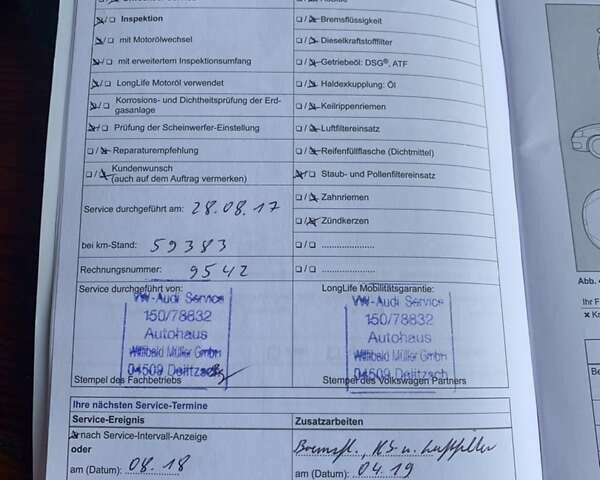 Inspektion
Bremsflüssigkeit
mit Motorölwechsel
Dieselkraftstofffilter
mit erweitertem Inspektionsumfang
Getriebeöl: DSG®, ATF
LongLife Motoröl verwendet
Haldexkupplung: Öl
Korrosions- und Dichtheitsprüfung der Erd-
gasanlage
Keilrippenriemen
Prüfung der Scheinwerfer-Einstellung
Luftfiltereinsatz
Reparaturempfehlung
Reifenfüllflasche (Dichtmittel)
Kundenwunsch
(auch auf dem Auftrag vermerken)
Staub- und Pollenfiltereinsatz
Zahnriemen
Service durchgeführt am: 28.08.17
Zündkerzen
bei km-Stand: 59383
Rechnungsnummer: 9542
Service durchgeführt von:
LongLife Mobilitätsgarantie:
VW-Audi Service
150/78832
Autohaus
Willibald Müller GmbH
04509 Delitzsch
Stempel des Fachbetriebs
VW-Audi Service
150/78832
Autohaus
Willibald Müller GmbH
04509 Delitzsch
Stempel des Volkswagen Partners
Ihre nächsten Service-Termine
Service-Ereignis
Zusatzarbeiten
nach Service-Intervall-Anzeige
oder
am (Datum): 08.18
Bremsfl., KS u. Luftfilter
am (Datum): 04.19
Abb.
Ihr F